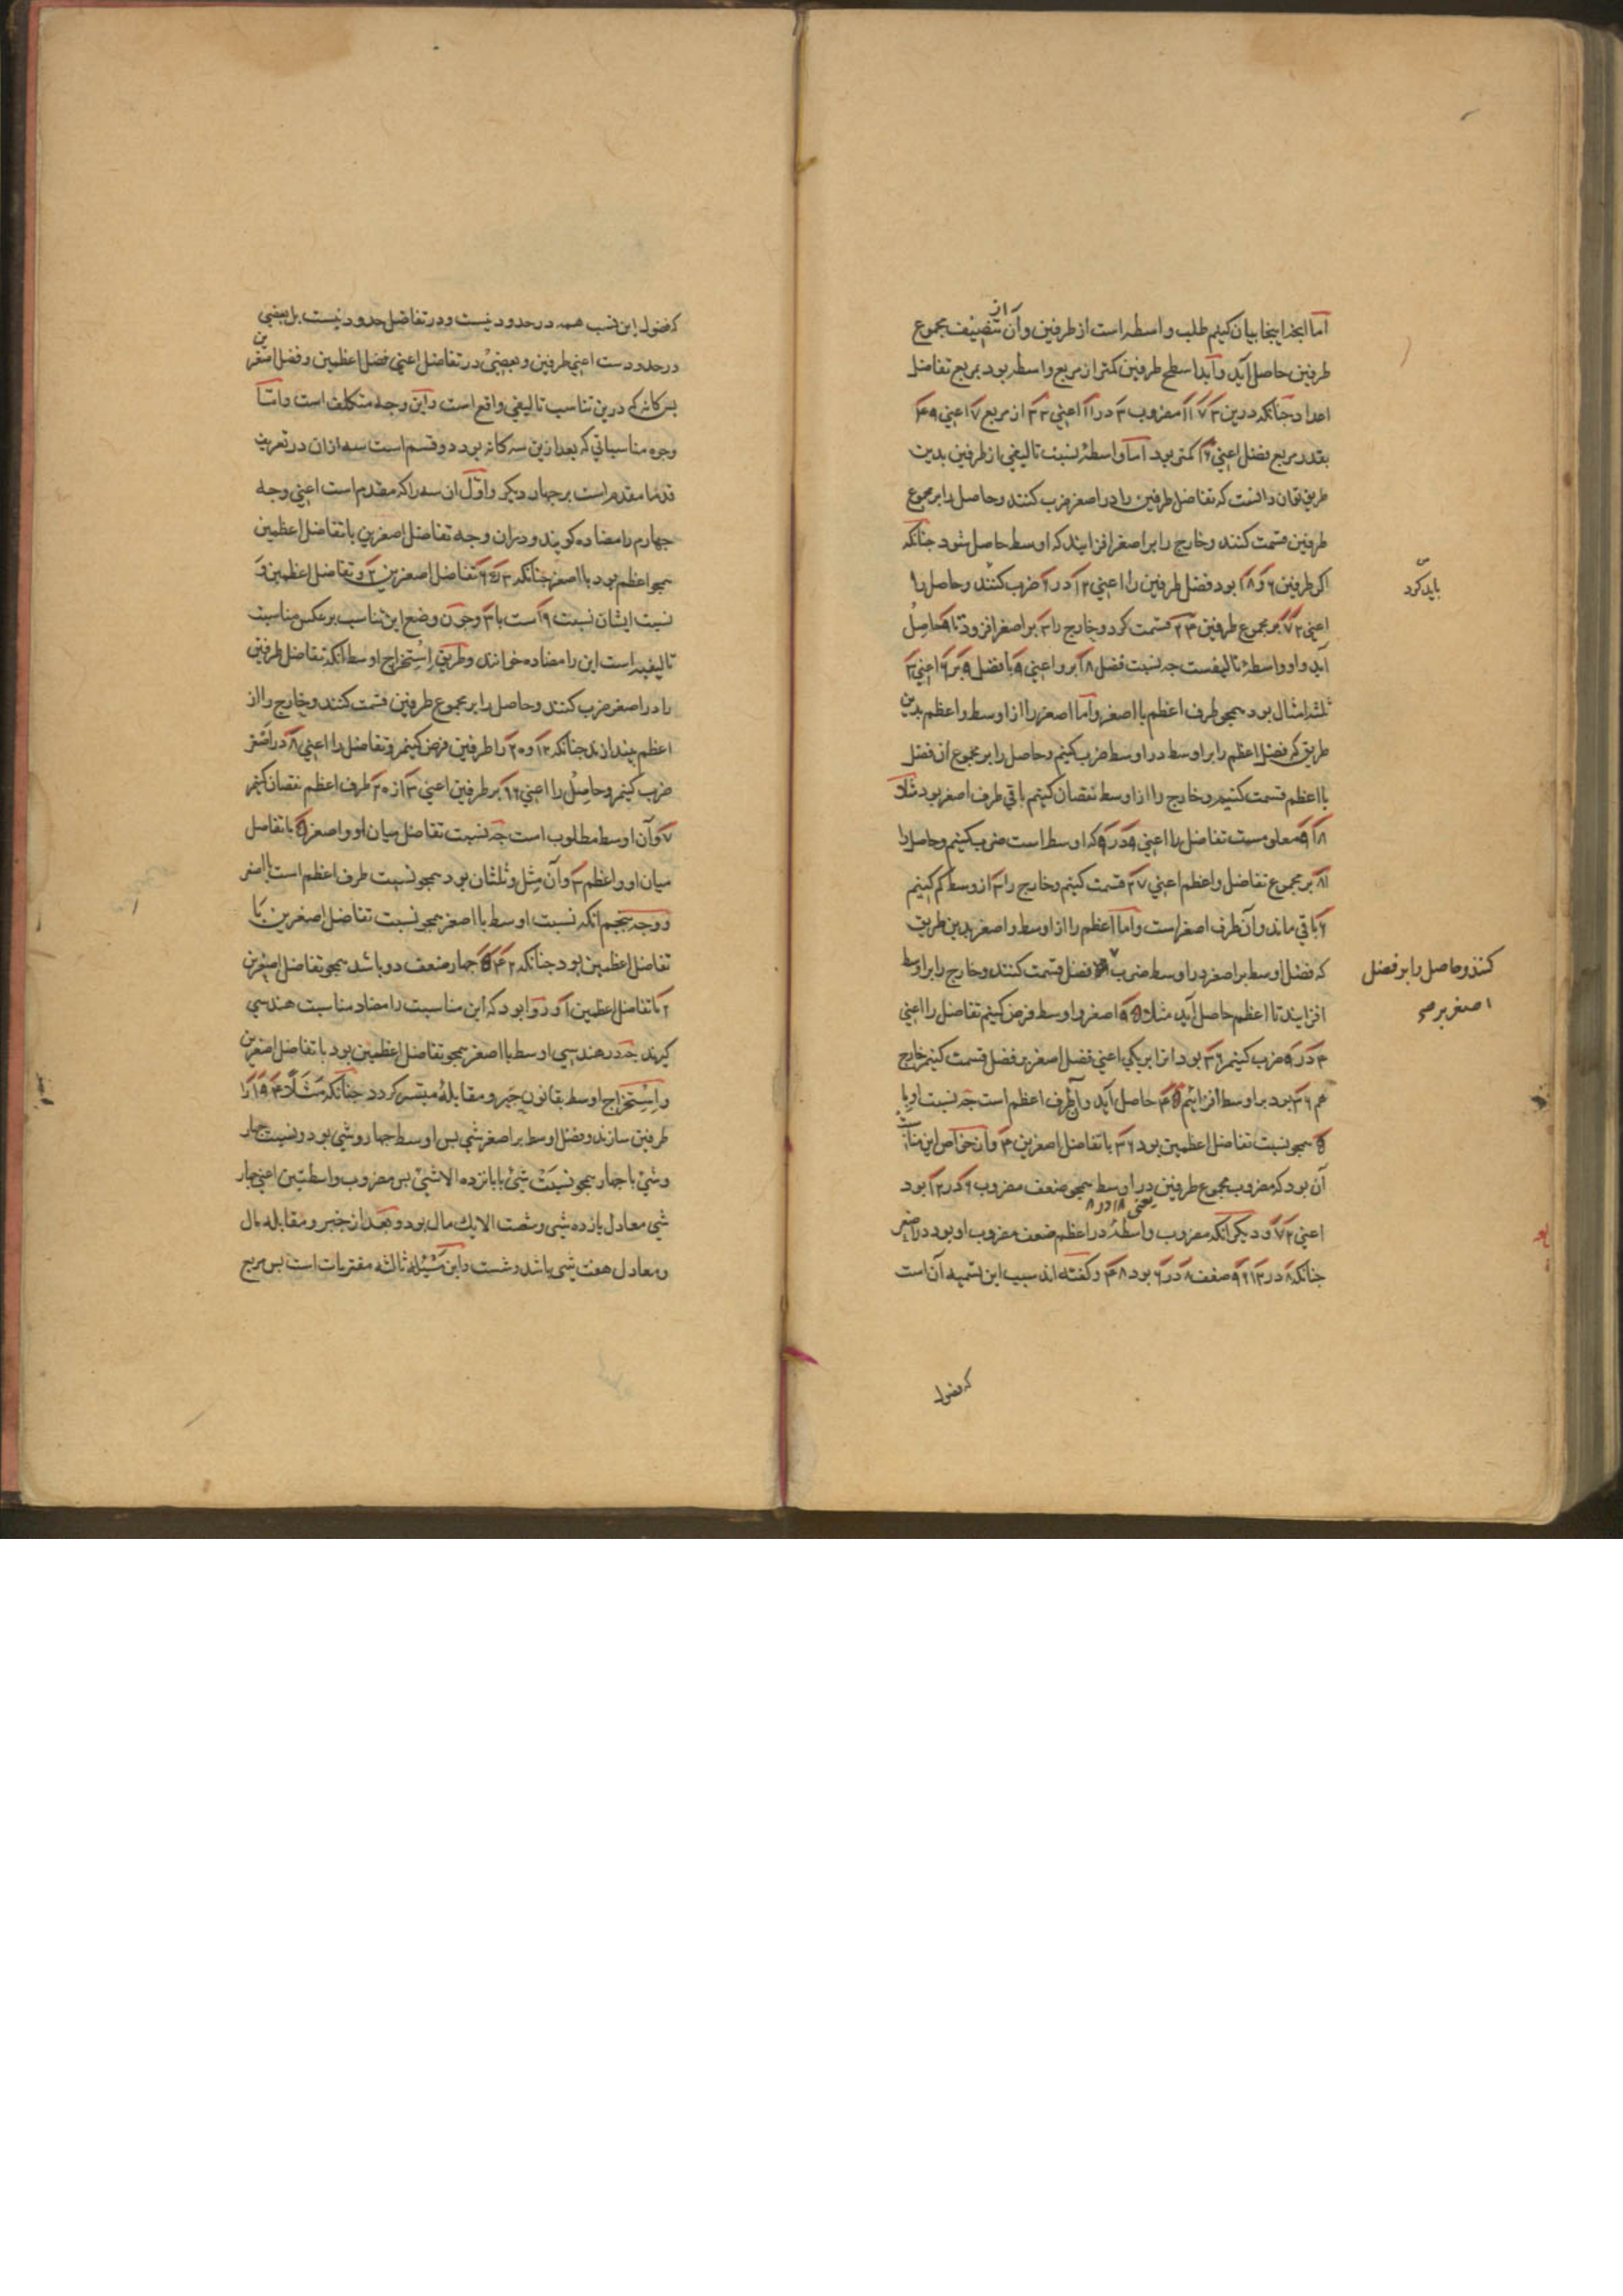 اما آنچه اینجا بیان کنیم طلب واسطه است از طرفین و آن از تنصیف مجموع
طرفین حاصل آید و آبدا سطح طرفین کمتر از مربع واسطه بود بمربع تفاضل
اعداد چنانکه درین ۳ ۷ ۱۱ مضروب ۳ در ۱۱ اعنی ۳۳ از مربع ۷ اعنی ۴۹
بقدر مربع فضل اعنی ۱۶ کمتر بود اما واسطهٔ نسبت تالیفی از طرفین بدین
طریق توان دانست که تفاضل طرفین را در اصغر ضرب کنند و حاصل را بر مجموع
طرفین قسمت کنند و خارج را بر اصغر افزایند که اوسط حاصل شود چنانکه
اکر طرفین ۶ و ۱۸ بود فضل طرفین را اعنی ۱۲ در ۶ ضرب کنند و حاصل را
باید کرد
اعنی ۷۲ بر مجموع طرفین ۲۴ قسمت کرد و خارج را ۳ بر اصغر افزود تا ۹ حاصل
آید و او واسطهٔ تالیفست چه نسبت فضل ۱۸ برو اعنی ۹ با فضل ۹ بر ۶ اعنی ۳
ثلثه امثال بود همچو طرف اعظم با اصغر و اما اصغر را از اوسط و اعظم بدین
طریق که فضل اعظم را بر اوسط در اوسط ضرب کنیم و حاصل را بر مجموع آن فضل
با اعظم قسمت کنیم و خارج را از اوسط نقصان کنیم باقی طرف اصغر بود مثلا
۱۸ ۹ معلومست تفاضل را اعنی ۹ در ۹ که اوسط است ضرب کنیم و حاصل را
۸۱ بر مجموع تفاضل و اعظم اعنی ۲۷ قسمت کنیم و خارج را ۳ از اوسط کم کنیم
۶ باقی ماند و آن طرف اصغر است و اما اعظم را از اوسط و اصغر بدین طریق
که فضل اوسط بر اصغر در اوسط ضرب فضل قسمت کنند و خارج را بر اوسط
کنند و حاصل را بر فضل
اصغر بر
افزایند تا اعظم حاصل آید مثلا ۵ ۹ اصغر و اوسط فرض کنیم تفاضل را اعنی
۴ در ۹ ضرب کنیم ۳۶ بود انرا بر یکی اعنی فضل اصغر بر فضل قسمت کنیم خارج
هم ۳۶ بود بر اوسط افزائیم ۴۵ حاصل آید و آن طرف اعظم است چه نسبت او با
۵ همچو نسبت تفاضل اعظمین بود ۳۶ با تفاضل اصغرین ۴ و از خواص این
آن بود که مضروب مجموع طرفین در اوسط همچو ضعف مضروب ۶ در ۱۲ بود
یعنی ۱۸ در ۸
اعنی ۷۲ و دیکر آنکه مضروب واسطه در اعظم ضعف مضروب او بود در اصغر
چنانکه ۸ در ۱۲ ۹۶ ضعف ۸ در ۶ بود ۴۸ و کفته اند سبب این تسمیه آن است
که فضول
که فضول این نسب همه در حدود نیست و در تفاضل حدود نیست بل بعضی
در حدودست اعنی طرفین و بعضی در تفاضل اعنی فضل اعظمین و فضل اصغرین
پس کانه درین تناسب تالیفی واقع است و این وجه متکلف است و اما
وجوه مناسباتی که بعد ازین سه کانه بود دو قسم است سه ازان در تعریف
قدما مقدم است بر چهار دیکر و اول ان سه را که مقدم است اعنی وجه
چهارم را مضاده کویند و دران وجه تفاضل اصغرین با تفاضل اعظمین
همچو اعظم بود با اصغر چنانکه ۳ ۵ ۶ تفاضل اصغرین ۲ و تفاضل اعظمین و
نسبت ایشان نسبت ۶ است با ۳ و چون وضع این تناسب بر عکس مناسبت
تالیفیه است این را مضاده خوانند و طریق استخراج اوسط آنکه تفاضل طرفین
را در اصغر ضرب کنند و حاصل را بر مجموع طرفین قسمت کنند و خارج را از
اعظم بیندازند چنانکه ۱۲ و ۲۰ را طرفین فرض کنیم و تفاضل را اعنی ۸ در اصغر
ضرب کنیم و حاصل را اعنی ۹۶ بر طرفین اعنی ۳ از ۲۰ طرف اعظم نقصان کنیم
۱۷ و آن اوسط مطلوب است چه نسبت تفاضل میان او و اصغر ۵ با تفاضل
میان او و اعظم ۳ و آن مثل و ثلثان بود همچو نسبت طرف اعظم است با اصغر
و وجه پنجم آنکه نسبت اوسط با اصغر همچو نسبت تفاضل اصغرین با
تفاضل اعظمین بود چنانکه ۲ ۴ ۵ چهار ضعف دو باشد همچو تفاضل اصغرین
۲ با تفاضل اعظمین ۱ و روا بود که این مناسبت را مضاد مناسبت هندسی
کیرند چه در هندسی اوسط با اصغر همچو تفاضل اعظمین بود با تفاضل اصغرین
و استخراج اوسط بقانون جبر و مقابله میسر کردد چنانکه مثلا ۴ ۱۹ را
طرفین سازند و فضل اوسط بر اصغر شی پس اوسط چهار و شی بود و نسبت چهار
و شی با چهار همچو نسبت شی با پانزده الا شی پس مضروب واسطتین اعنی چهار
شی معادل یازده شی و شصت الا یک مال بود و بعد از جبر و مقابله مال
و معادل هفت شی باشد و شصت و این مسئله ثالثه مقترنات است پس مربع